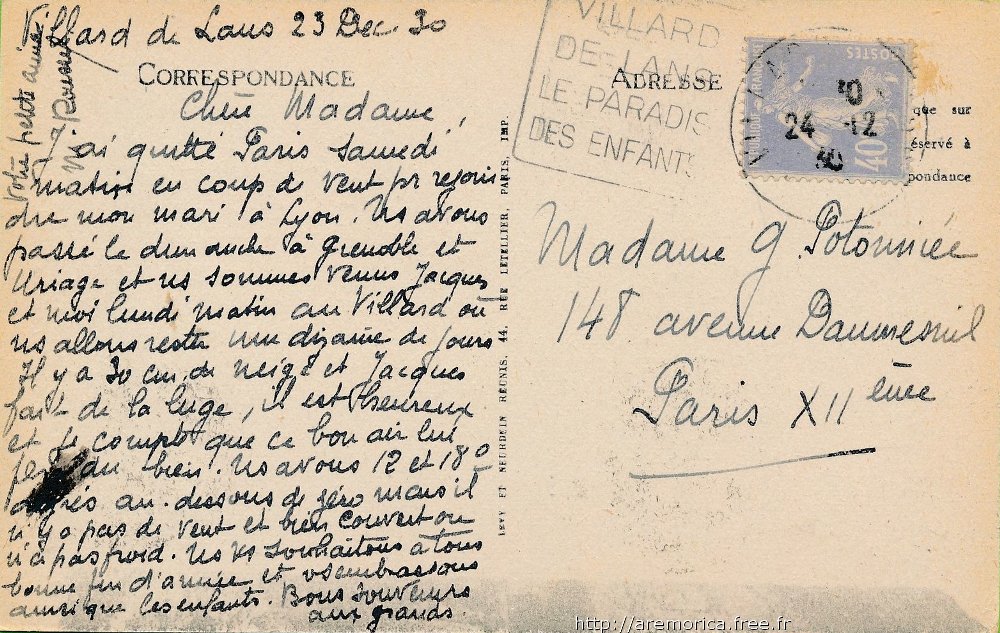 Villard de Lans 23 Dec. 30
CORRESPONDANCE
Chère Madame,
J'ai quitté Paris samedi
matin en coup de vent pr rejoin
dre mon mari à Lyon. Ns avons
passé le dimanche à Grenoble et
Uriage et ns sommes venus Jacques
et moi lundi matin au Villard où
ns allons rester une dizaine de jours
Il y a 30 cm. de neige et Jacques
fait de la luge, il est heureux
et je compte que ce bon air lui
fera du bien. Ns avons 12 et 18°
degrés au-dessous de zéro mais il
n'y a pas de vent et bien couvert on
n'a pas froid. Ns vs souhaitons à tous
bonne fin d'année et vs embrassons
ainsi que les enfants. Bons souvenirs
aux grands.
Votre petite amie
LEVY ET NEURDEIN RÉUNIS, 44, RUE LETELLIER, PARIS, IMP.
VILLARD
DE-LANS
LE PARADIS
DES ENFANTS
ADRESSE
POSTES
40
24 -12
30
que sur
éservé à
pondance
Madame G. Potonniée
148 avenue Daumesnil
Paris XII ème
http://aremorica.free.fr